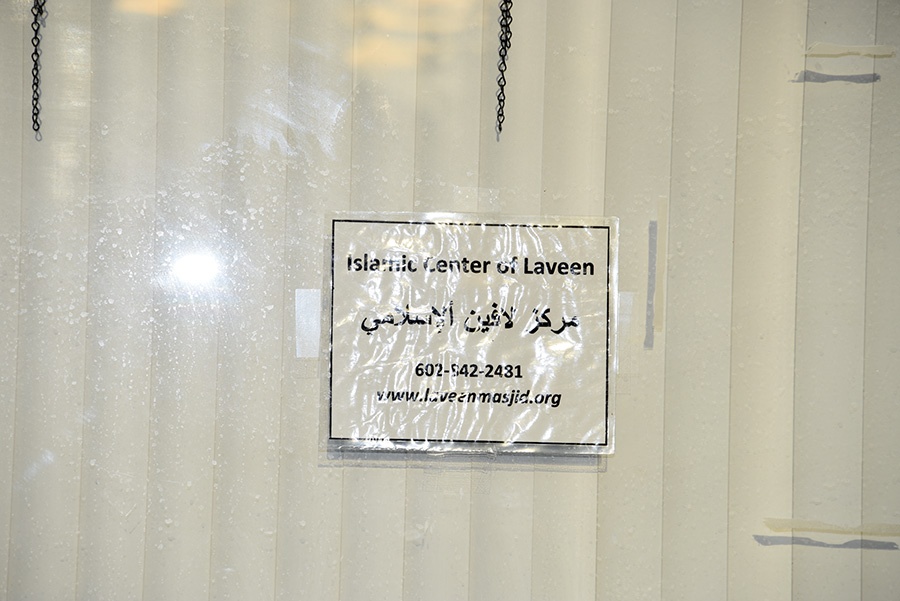 Islamic Center of Laveen
مركز لافين ألإسلامي
602-842-2431
www.laveenmasjid.org